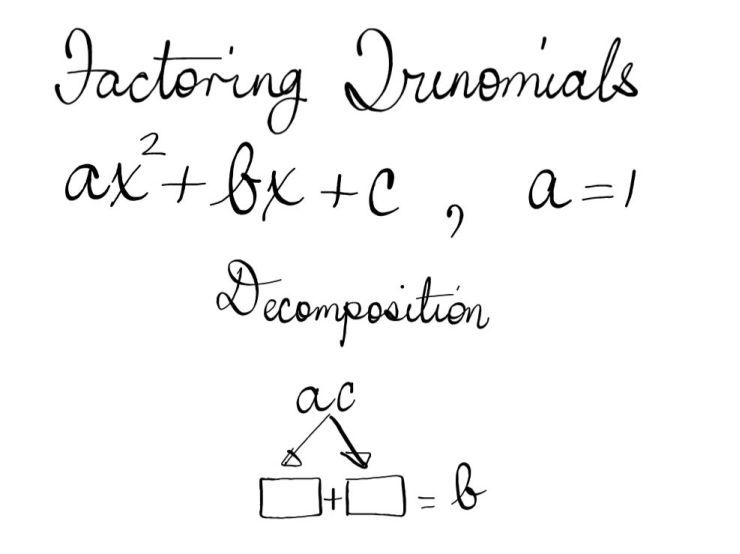 Factoring Trinomials
ax²+bx+c, a=1
Decomposition
ac
□+□=b